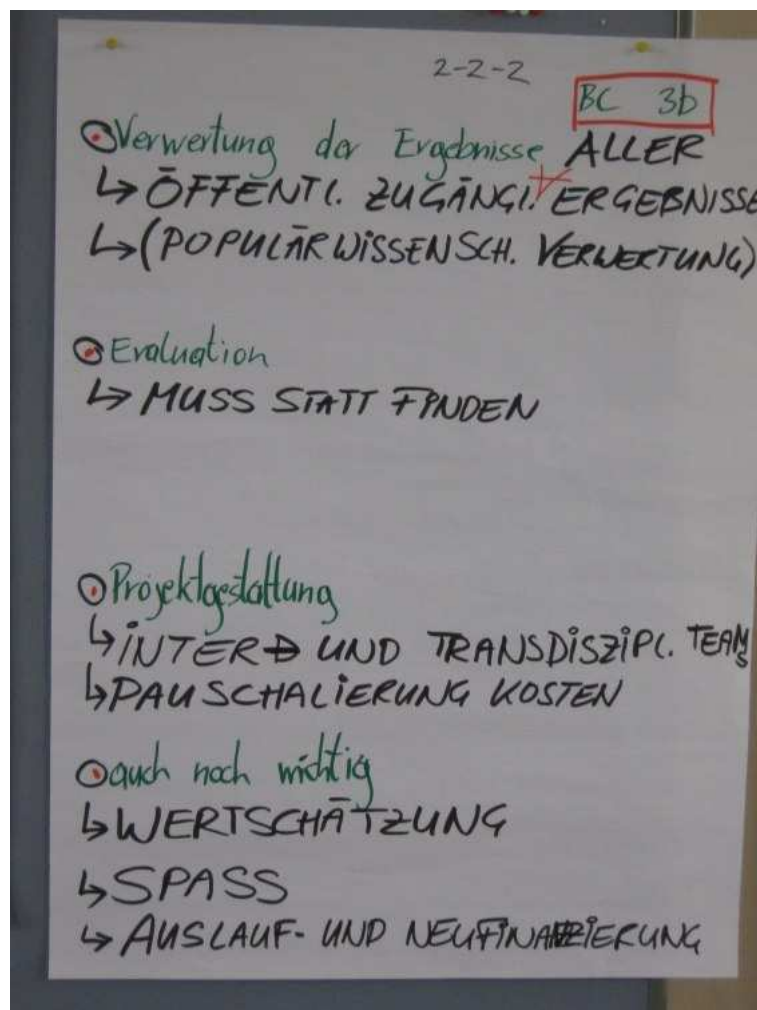 2-2-2
BC 3b
Verwertung der Ergebnisse ALLER
↳ ÖFFENTL. ZUGÄNGL. ERGEBNISSE
↳ (POPULÄRWISSENSCH. VERWERTUNG)
Evaluation
↳ MUSS STATT FINDEN
Projektgestaltung
↳ INTER- UND TRANSDISZIPL. TEAMS
↳ PAUSCHALIERUNG KOSTEN
auch noch wichtig
↳ WERTSCHÄTZUNG
↳ SPASS
↳ AUSLAUF- UND NEUFINANZIERUNG